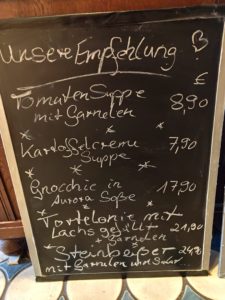 Unsere Empfehlung
€
Tomaten Suppe 8,90
mit Garnelen
Kartoffelcreme 7,90
Suppe
Gnocchie in 17,90
Aurora Soße
Tortelonie mit
Lachs gefüllt 21,90
+ Garnelen
Steinbeißer
mit Garnelen und Salat